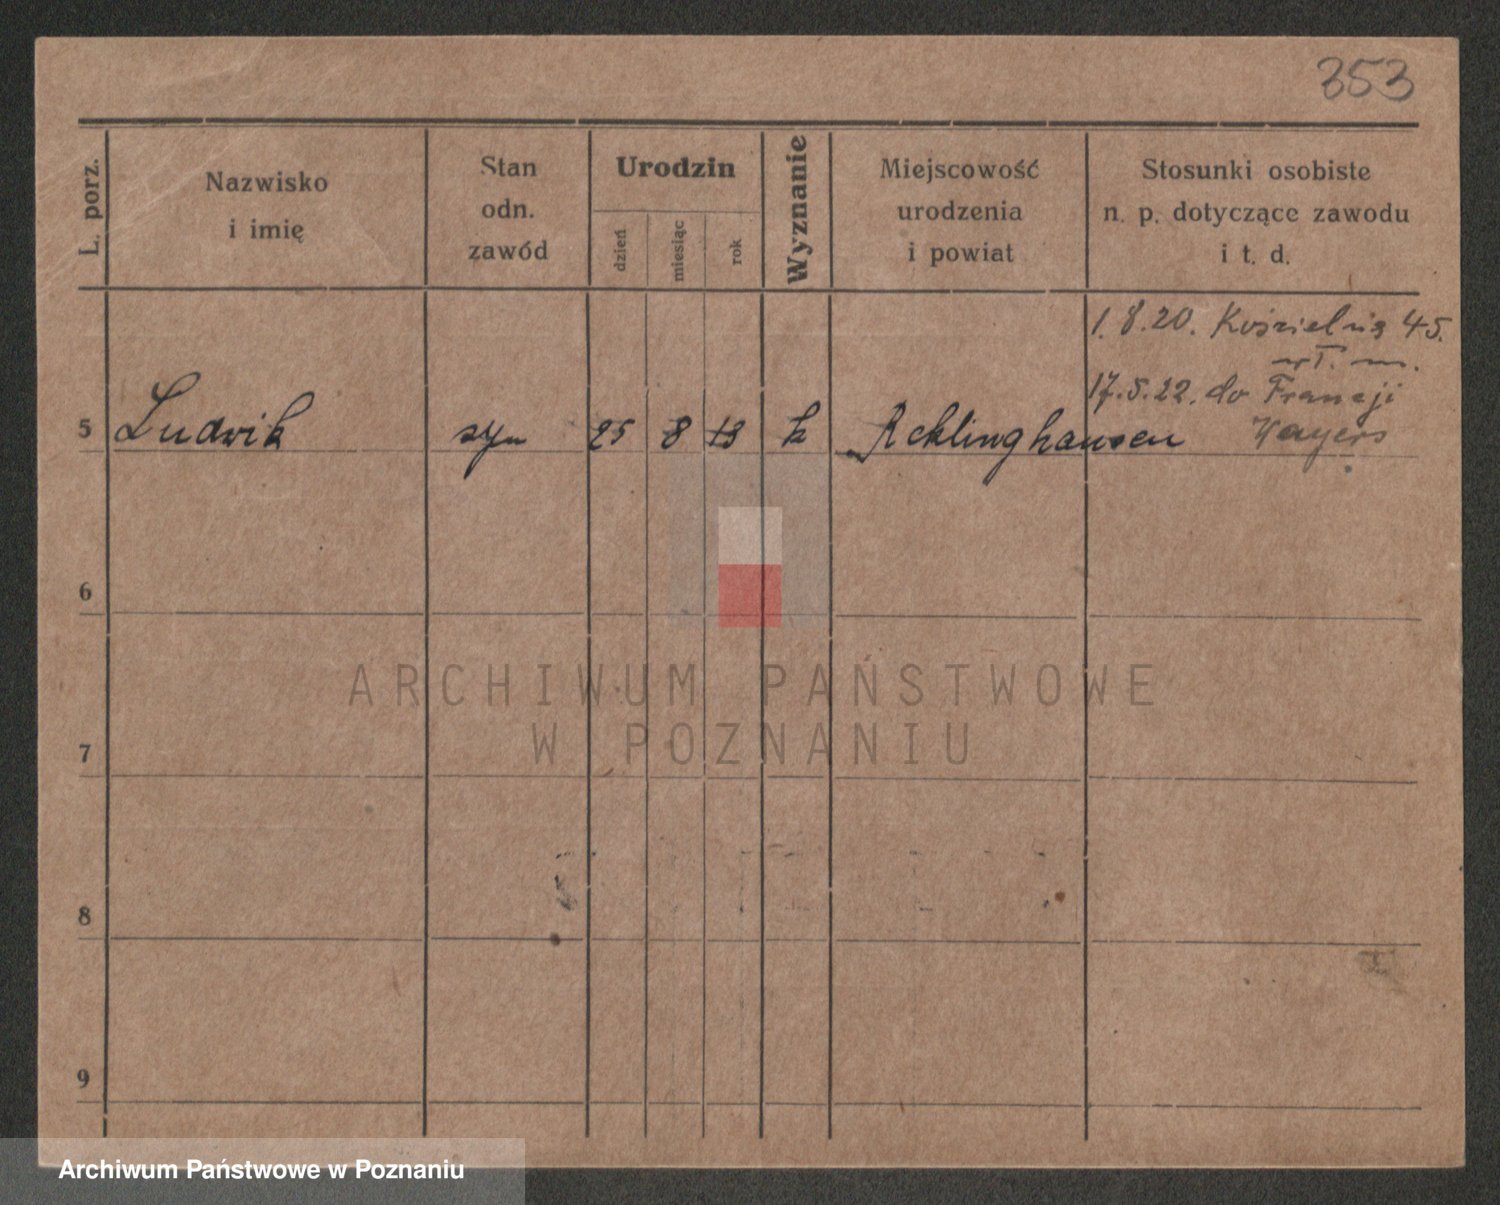 353
L. porz.
Nazwisko
i imię
Stan
odn.
zawód
Urodzin
dzień
miesiąc
rok
Wyznanie
Miejscowość
urodzenia
i powiat
Stosunki osobiste
n. p. dotyczące zawodu
i t. d.
1.8.20. Kościelna 45.
17.5.22. do Francji
5 Ludwik syn 25 8 13 k Reklinghausen
6
ARCHIWUM PAŃSTWOWE
W POZNANIU
7
8
9
Archiwum Państwowe w Poznaniu